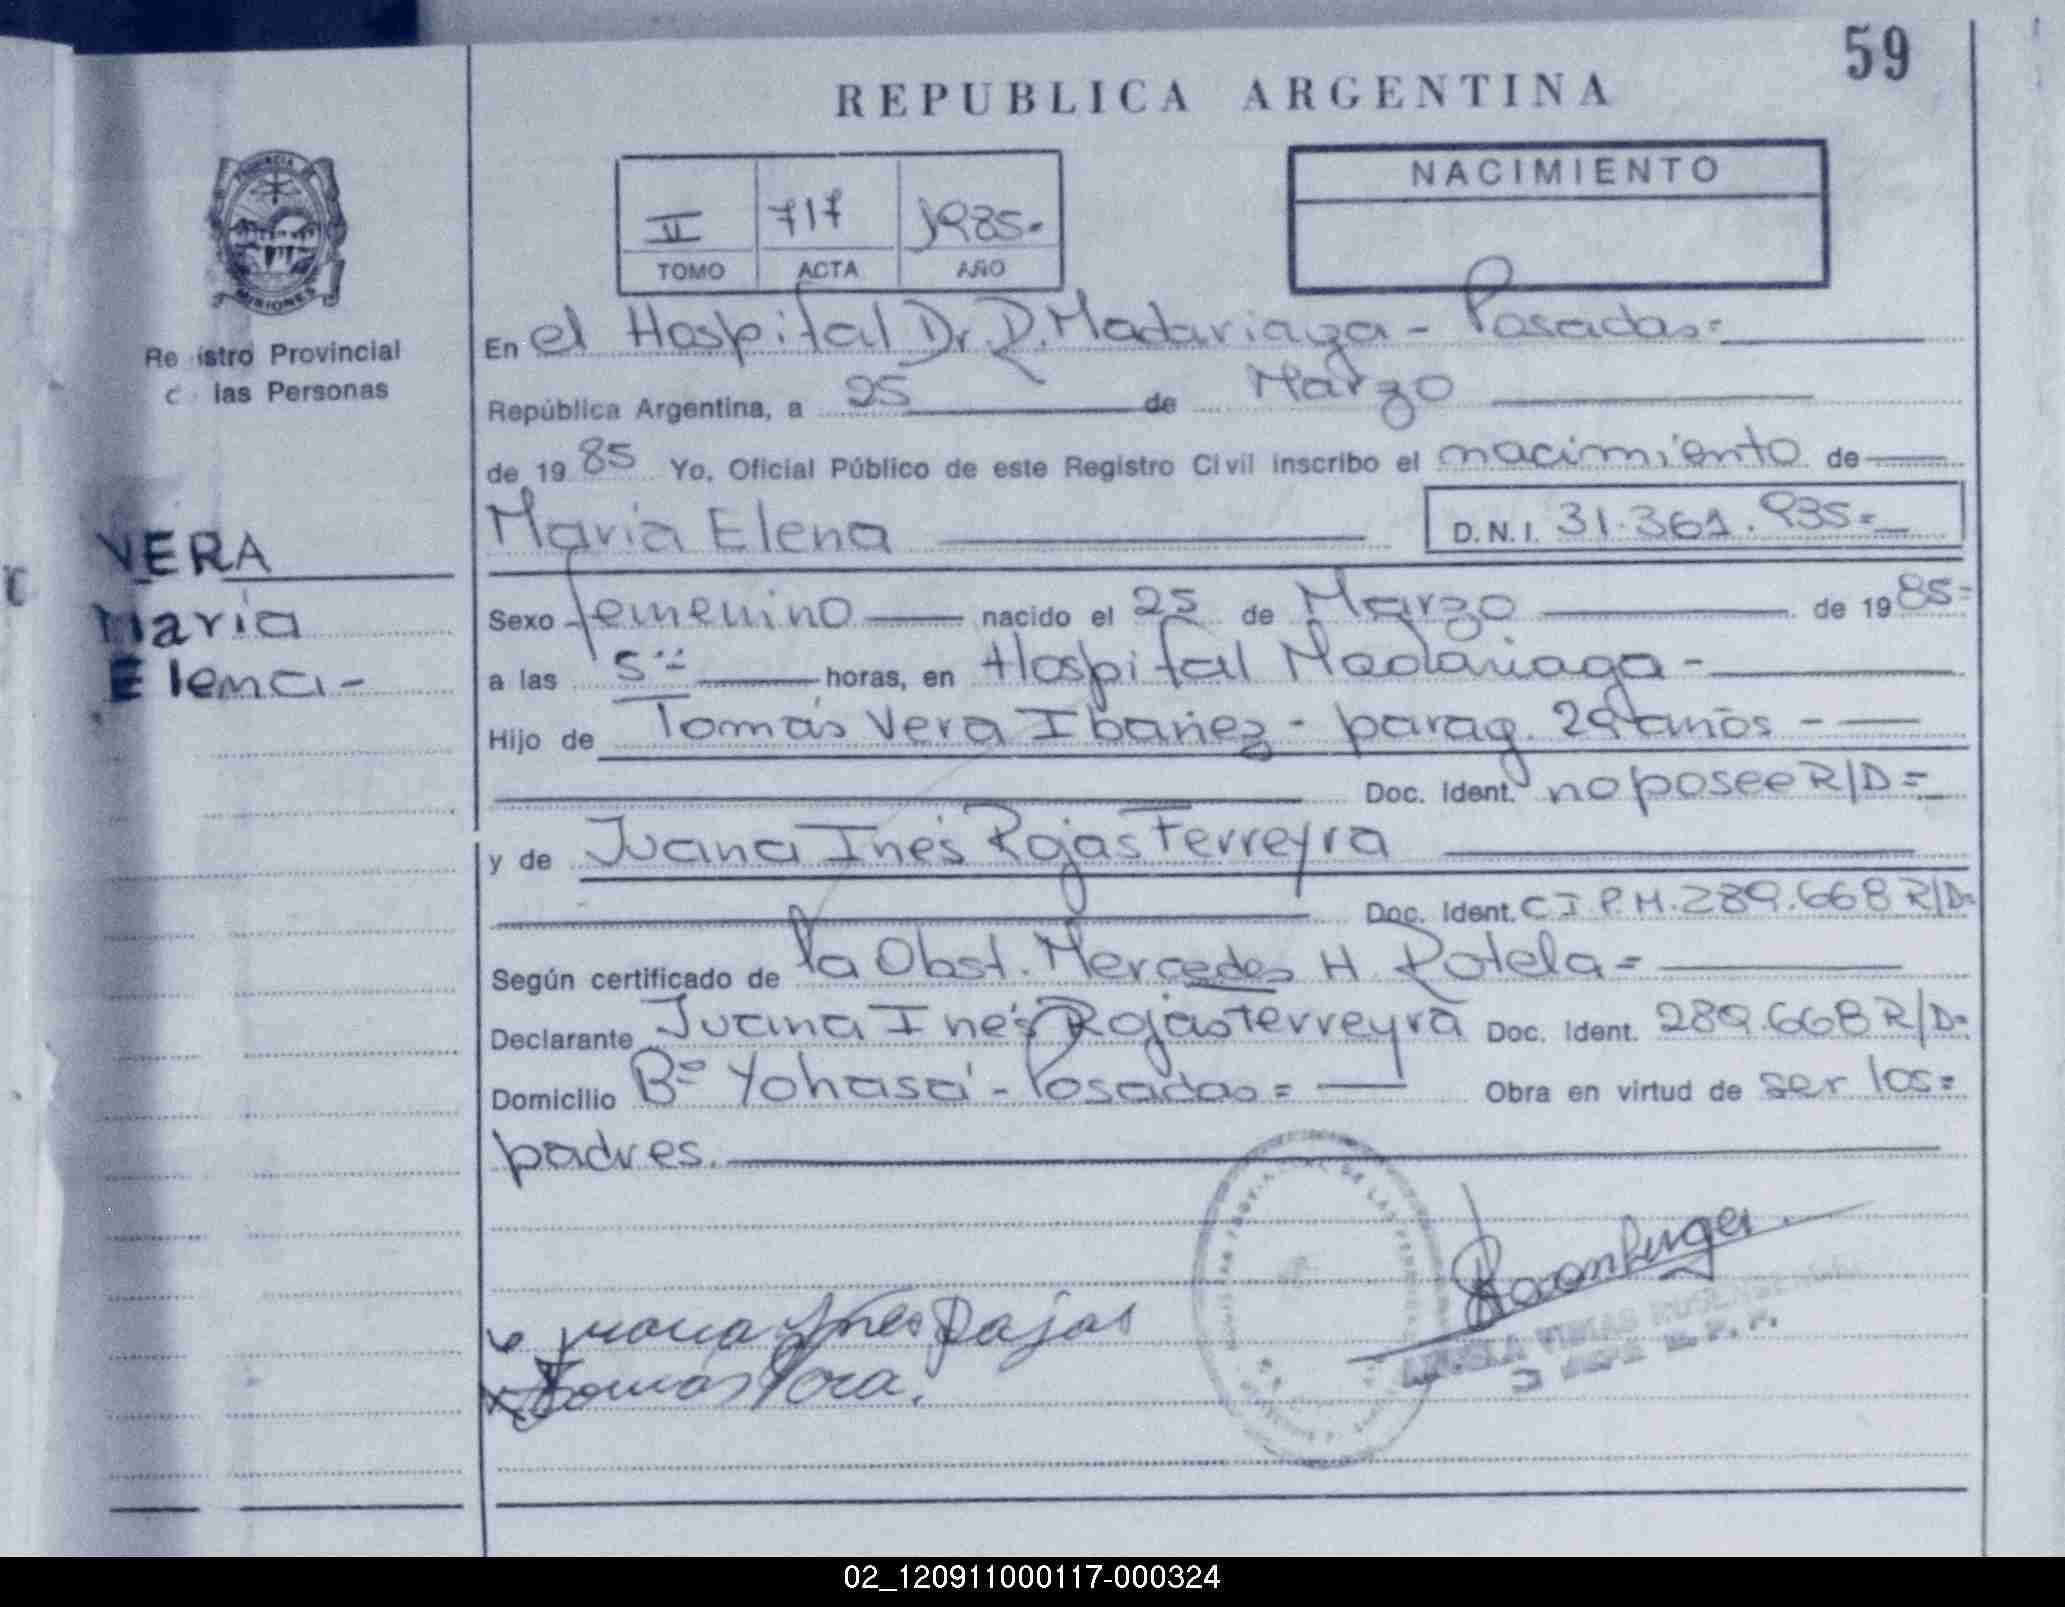 59
REPUBLICA ARGENTINA
PROVINCIA DE
MISIONES
Re istro Provincial
c las Personas
II 717 1985-
TOMO ACTA AÑO
NACIMIENTO
En el Hospital Dr. R. Madariaga - Posadas=
República Argentina, a 25 de Marzo
de 19 85 Yo, Oficial Público de este Registro Civil inscribo el nacimiento de
María Elena
D.N.I. 31.361.935=
VERA
María
Elena-
Sexo femenino nacido el 25 de Marzo de 19 85=
a las 5 horas, en Hospital Madariaga -
Hijo de Tomás Vera Ibañez - parag. 29 años -
Doc. Ident. no posee R/D=
y de Juana Inés Rojas Ferreyra
Doc. Ident. C I P.M. 289.668 R/D=
Según certificado de la Obst. Mercedes H Rotela=
Declarante Juana Inés Rojas Ferreyra Doc. Ident. 289.668 R/D=
Domicilio Bº Yohasá - Posadas= Obra en virtud de ser los=
padres.
Juana Ines Rojas
Tomás Vera.
02_120911000117-000324